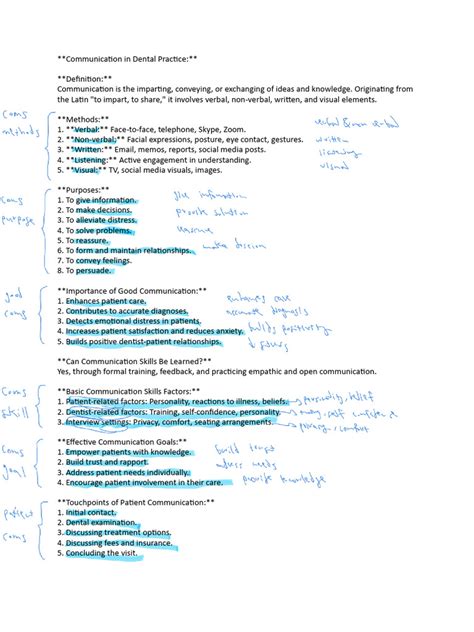 **Communication in Dental Practice:**
**Definition:**
Communication is the imparting, conveying, or exchanging of ideas and knowledge. Originating from
the Latin "to impart, to share," it involves verbal, non-verbal, written, and visual elements.
coms
methods
**Methods:**
1. **Verbal:** Face-to-face, telephone, Skype, Zoom.
2. **Non-verbal:** Facial expressions, posture, eye contact, gestures.
3. **Written:** Email, memos, reports, social media posts.
4. **Listening:** Active engagement in understanding.
5. **Visual:** TV, social media visuals, images.
verbal & non verbal
written
listening
visual
coms
purpose
**Purposes:**
1. To give information.
2. To make decisions.
3. To alleviate distress.
4. To solve problems.
5. To reassure.
6. To form and maintain relationships.
7. To convey feelings.
8. To persuade.
give information
provide solution
reassure
make decision
good
coms
**Importance of Good Communication:**
1. Enhances patient care.
2. Contributes to accurate diagnoses.
3. Detects emotional distress in patients.
4. Increases patient satisfaction and reduces anxiety.
5. Builds positive dentist-patient relationships.
enhances care
accurate diagnosis
builds positivity
**Can Communication Skills Be Learned?**
Yes, through formal training, feedback, and practicing empathic and open communication.
Coms
skill
**Basic Communication Skills Factors:**
1. Patient-related factors: Personality, reactions to illness, beliefs.
2. Dentist-related factors: Training, self-confidence, personality.
3. Interview settings: Privacy, comfort, seating arrangements.
personality, belief
privacy, comfort
Coms
goal
**Effective Communication Goals:**
1. Empower patients with knowledge.
2. Build trust and rapport.
3. Address patient needs individually.
4. Encourage patient involvement in their care.
build trust
address needs
provide knowledge
patient
coms
**Touchpoints of Patient Communication:**
1. Initial contact.
2. Dental examination.
3. Discussing treatment options.
4. Discussing fees and insurance.
5. Concluding the visit.